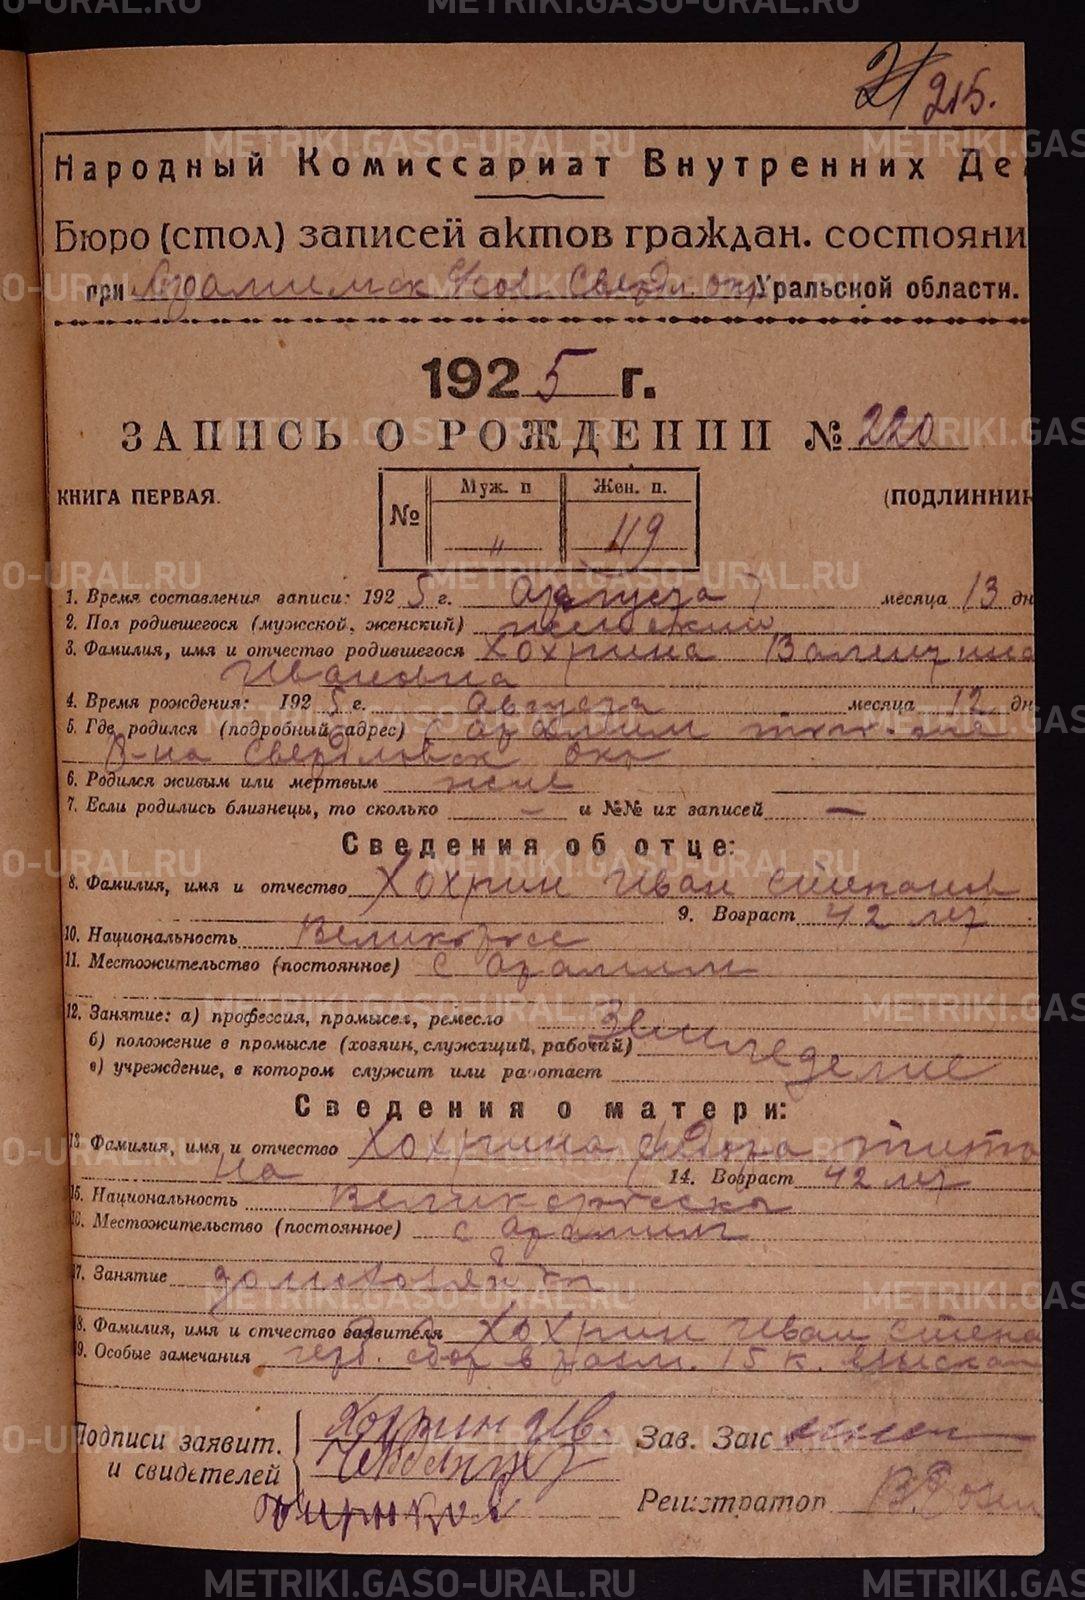 21 215.
Народный Комиссариат Внутренних Де
Бюро (стол) записей актов граждан. состояни
при Арамильск Свердл окр Уральской области.
1925 г.
ЗАПИСЬ О РОЖДЕНИИ № 220
КНИГА ПЕРВАЯ.
(ПОДЛИННИК
№ Муж. п Жен. п.
" 119
1. Время составления записи: 1925 г. Августа месяца 13 дн
2. Пол родившегося (мужской, женский) женский
3. Фамилия, имя и отчество родившегося Хохрина Валентина
Ивановна
4. Время рождения: 1925 г. Августа месяца 12 дн
5. Где родился (подробный адрес) с Арамиль
р-на Свердловск окр
6. Родился живым или мертвым жив
7. Если родились близнецы, то сколько — и №№ их записей —
Сведения об отце:
8. Фамилия, имя и отчество Хохрин Иван Степанов
9. Возраст 42 лет
10. Национальность Великоросс
11. Местожительство (постоянное) с Арамиль
12. Занятие: а) профессия, промысел, ремесло Земледелие
б) положение в промысле (хозяин, служащий, рабочий)
в) учреждение, в котором служит или работает
Сведения о матери:
13. Фамилия, имя и отчество Хохрина Федора Тито
на 14. Возраст 42 лет
15. Национальность Великоросска
16. Местожительство (постоянное) с Арамиль
17. Занятие домохозяйка
18. Фамилия, имя и отчество заявителя Хохрин Иван Степа
19. Особые замечания герб. сбор в разм. 15 к. взыскан
Подписи заявит. и свидетелей
Хохрин Ив.
Зав. Загс
Регистратор
METRIKI.GASO-URAL.RU